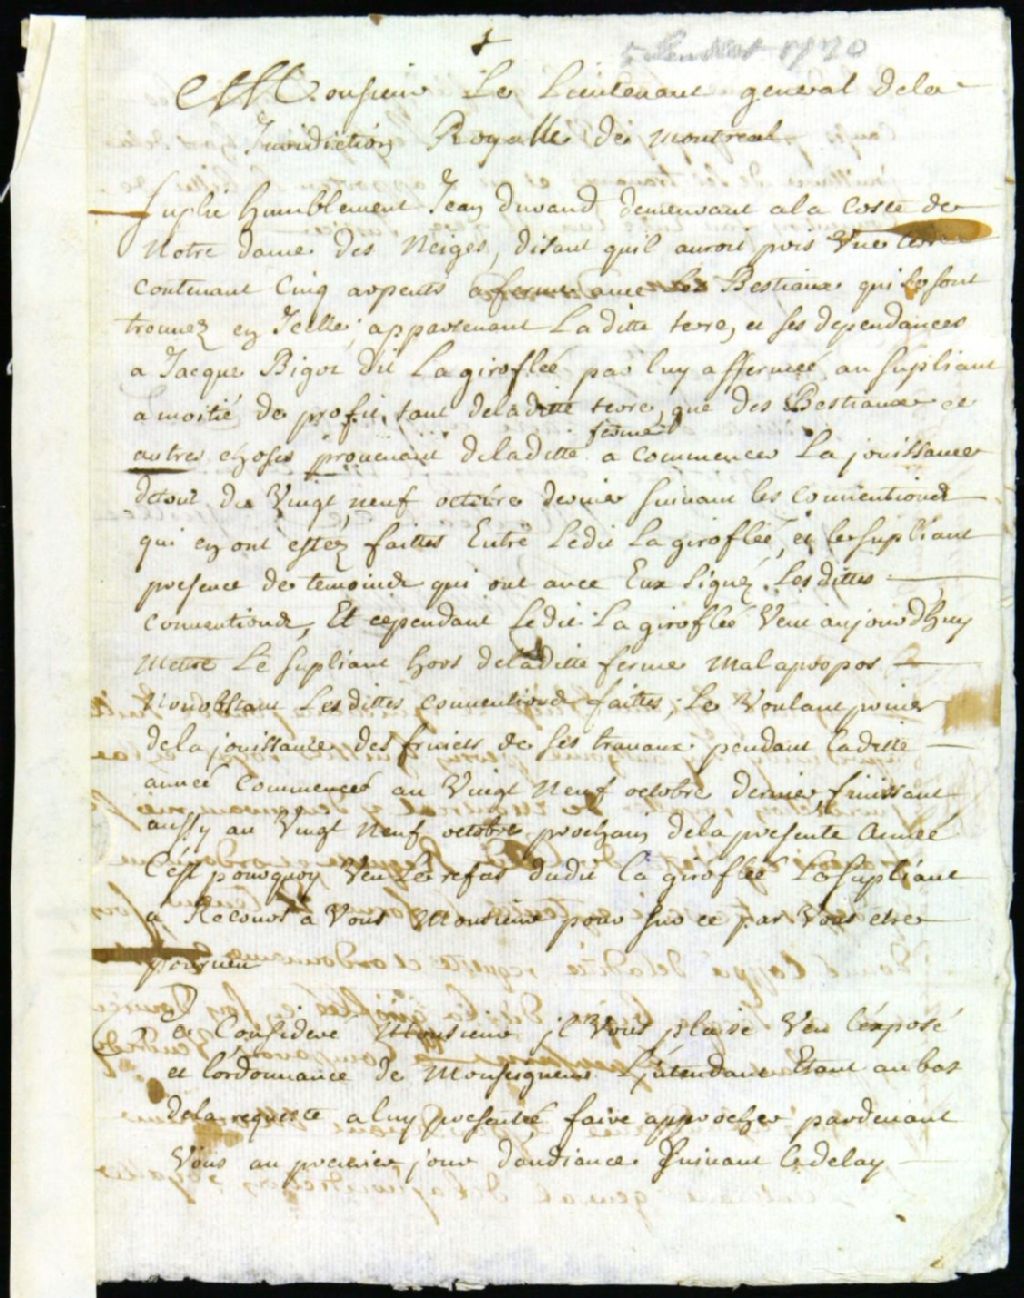 1720
A Monsieur Le Lieutenant general dela
Juridiction Royalle de Montreal
Suplie humblement Jean durand demeurant ala Coste de
Notre dame des Neiges, disant quil auroit pris Une terre
contenant Cinq arpents a ferme avec Les Bestiaux qui se sont
trouvez en Jcelle, appartenant Laditte terre, et ses dependances
a Jacque Bigot dit Lagirofleé par luy affermeé au supliant
a moitié de profit, tant deladitte terre, que des Bestiaux et
autres choses provenant deladitte ferme a commencer La jouissance
du Vingt neuf octobre dernier suivant les conventions
qui en ont estez faittes Entre Ledit Lagirofleé, et le supliant
presence de temoins qui ont avec Eux signé Lesdittes
conventions, Et cependant Ledit Lagirofleé Veut aujourdhuy
Mettre Le supliant hors deladitte ferme Mal apropos
Lesdittes conventions faittes; Le Voulant priver
dela jouissance des fruicts de ses travaux pendant laditte
anneé Commenceé au Vingt Neuf octobre dernier, finissant
aussy au Vingt Neuf octobre prochain dela presente Anneé
C'est pourquoy Veu Le refus dudit La girofleé Le supliant
a Recours a Vous Monsieur pour sur ce par Vous etre
pourveu
Ce Consideré Monsieur jl Vous plaise Veu l'exposé
et l'ordonnance de Monseigneur L'jntendant Etant au bas
dela requeste a luy presenteé faire approcher pardevant
Vous au premier jour d'audiance suivant le delay